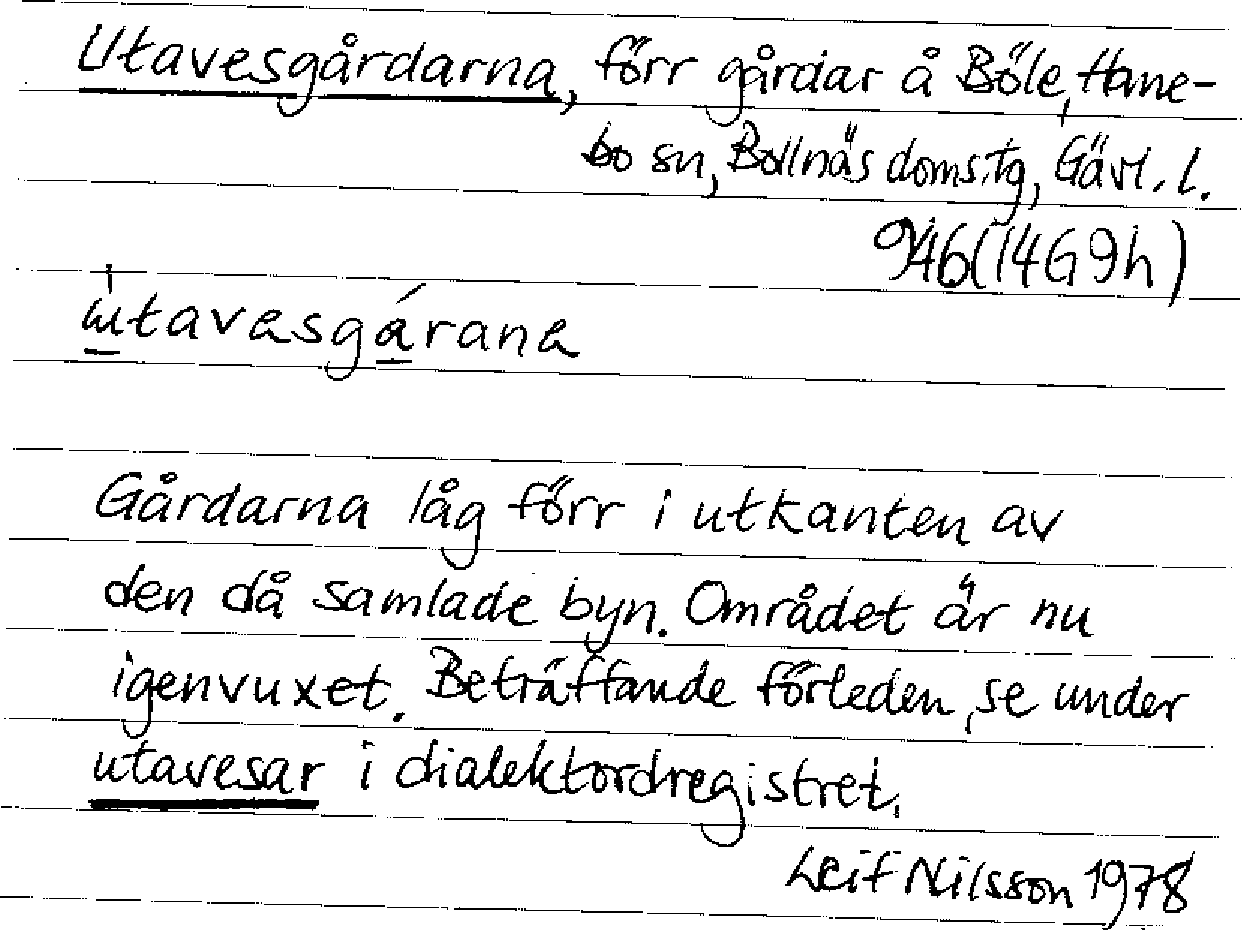 Utavesgårdarna, förr gårdar å Böle, Hane-
bo sn, Bollnäs doms.tg, Gävl. l.
946 (14G9h)
ɯ̀tavasgárana
Gårdarna låg förr i utkanten av
den då samlade byn. Området är nu
igenvuxet. Beträffande förleden, se under
utavesar i dialektordregistret.
Leif Nilsson 1978